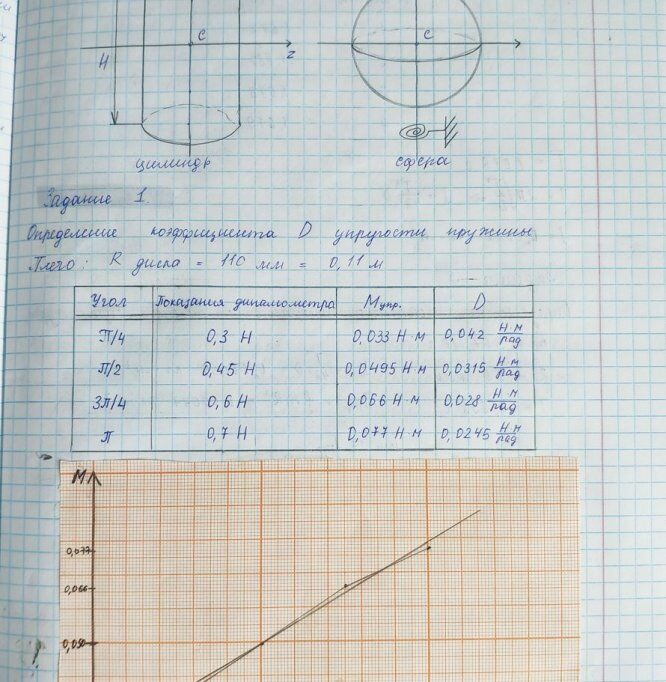 C
C
H
z
цилиндр
сфера
Задание 1.
Определение коэффициента D упругости пружины
Плечо: R диска = 110 мм = 0,11 м
Угол Показания динамометра Mупр. D
π/4 0,3 Н 0,033 Н м 0,042 Н м/рад
π/2 0,45 Н 0,0495 Н м 0,0315 Н м/рад
3π/4 0,6 Н 0,066 Н м 0,028 Н м/рад
π 0,7 Н 0,077 Н м 0,0245 Н м/рад
M
0,077
0,066
0,050